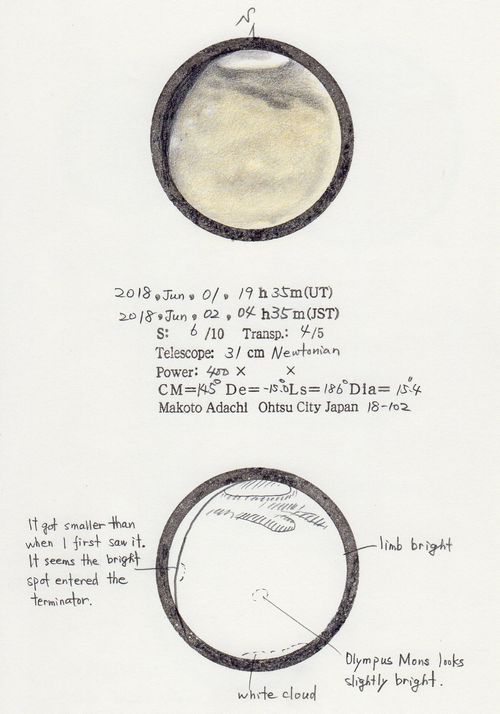 N
2018, Jun, 01, 19 h 35m (UT)
2018, Jun, 02, 04 h35m (JST)
S: 6 /10 Transp.: 4/5
Telescope: 31 cm Newtonian
Power: 400 × ×
CM=145° De=-15.0 Ls=186° Dia= 15.4"
Makoto Adachi Ohtsu City Japan 18-102
It got smaller than
when I first saw it.
It seems the bright
spot entered the
terminator.
limb bright
Olympus Mons looks
slightly bright.
white cloud